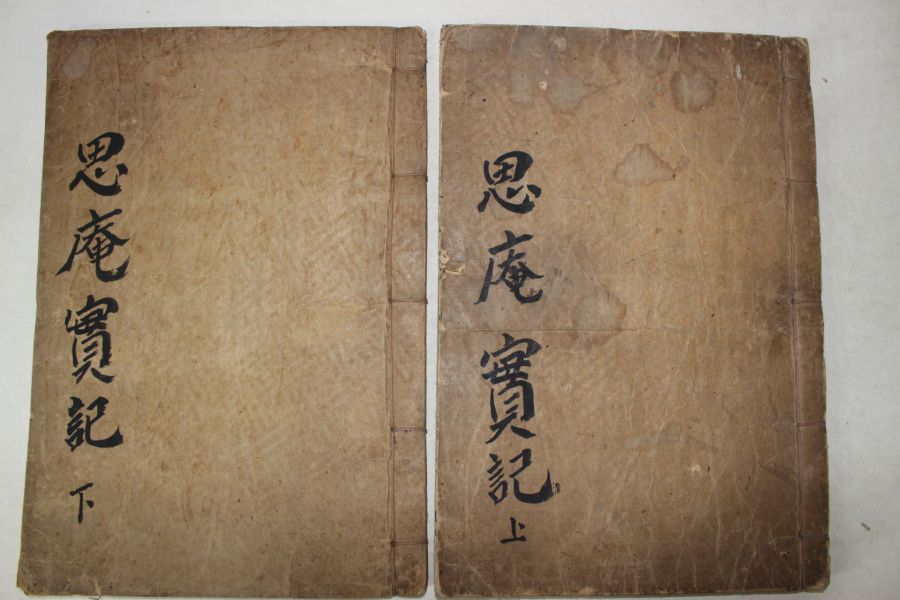 思庵實記
上
思庵實記
下